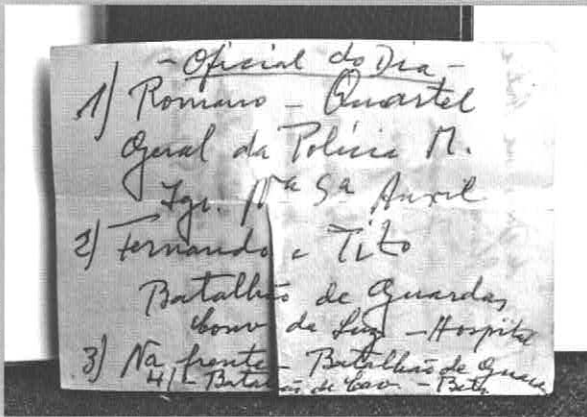 - Oficial do Dia -
1) Romano - Quartel
Geral da Polícia M.
Igr. Nª Sª Auxil
2) Fernando e Tito
Batalhão de Guardas
da Luz - Hospital
3) Na frente - Batalhão de Guar
4) - Batalhão de Cav. - Beto